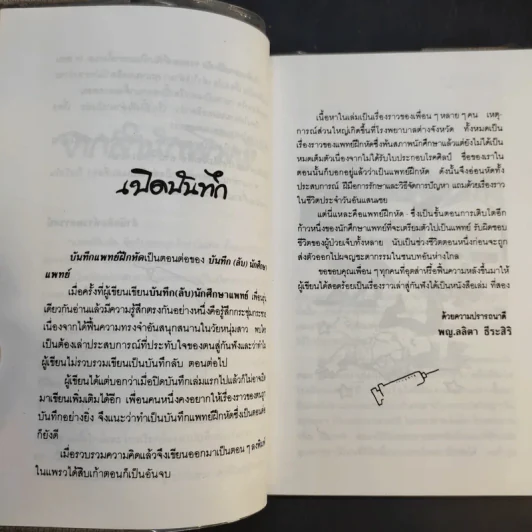 เปิดบันทึก
บันทึกแพทย์ฝึกหัดเป็นตอนต่อของ บันทึก (ลับ) นักศึกษา
แพทย์
เมื่อครั้งที่ผู้เขียนเขียนบันทึก(ลับ)นักศึกษาแพทย์ เพื่อนๆ
เดียวกันอ่านแล้วมีความรู้สึกตรงกันอย่างหนึ่งคือรู้สึกกระชุ่มกระชวย
เนื่องจากได้ฟื้นความทรงจำอันสนุกสนานในวัยหนุ่มสาว พบใคร
เป็นต้องเล่าประสบการณ์ที่ประทับใจของตนสู่กันฟังและว่าทำไม
ผู้เขียนไม่รวบรวมเขียนเป็นบันทึกลับ ตอนต่อไป
ผู้เขียนได้แต่บอกว่าเมื่อปิดบันทึกเล่มแรกไปแล้วก็ไม่อาจเปิด
มาเขียนเพิ่มเติมได้อีก เพื่อนคนหนึ่งคงอยากให้เรื่องราวของตน
บันทึกอย่างยิ่ง จึงแนะว่าทำเป็นบันทึกแพทย์ฝึกหัดซึ่งเป็นตอนต่อ
ก็ยังดี
เมื่อรวบรวมความคิดแล้วจึงเขียนออกมาเป็นตอน ๆ ลงพิมพ์
ในแพรวได้สิบเก้าตอนก็เป็นอันจบ
เนื้อหาในเล่มเป็นเรื่องราวของเพื่อน ๆ หลาย ๆ คน เหตุ-
การณ์ส่วนใหญ่เกิดขึ้นที่โรงพยาบาลต่างจังหวัด ทั้งหมดเป็น
เรื่องราวของแพทย์ฝึกหัดซึ่งพ้นสภาพนักศึกษาแล้วแต่ยังไม่ได้เป็น
หมอเต็มตัวเนื่องจากไม่ได้รับใบประกอบโรคศิลป์ ชื่อของเราใน
ตอนนั้นก็บอกอยู่แล้วว่าเป็นแพทย์ฝึกหัด ดังนั้นจึงอ่อนหัดทั้ง
ประสบการณ์ ฝีมือการรักษาและวิธีจัดการปัญหา แถมด้วยเรื่องราว
ในชีวิตประจำวันอันแสนเชย
แต่นี่แหละคือแพทย์ฝึกหัด - ซึ่งเป็นขั้นตอนการเติบโตอีก
ก้าวหนึ่งของนักศึกษาแพทย์ที่จะเตรียมตัวไปเป็นแพทย์ รับผิดชอบ
ชีวิตของผู้ป่วยเจ็บทั้งหลาย นับเป็นช่วงชีวิตตอนหนึ่งก่อนจะถูก
ส่งตัวออกไปเผชิญชะตากรรมในชนบทอันห่างไกล
ขอขอบคุณเพื่อน ๆ ทุกคนที่อุตส่าห์รื้อฟื้นความหลังขึ้นมาให้
ผู้เขียนได้สอดร้อยเป็นเรื่องราวเล่าสู่กันฟังได้เป็นหนังสือเล่ม ที่สอง
ด้วยความปรารถนาดี
พญ.ลลิตา ธีระสิริ